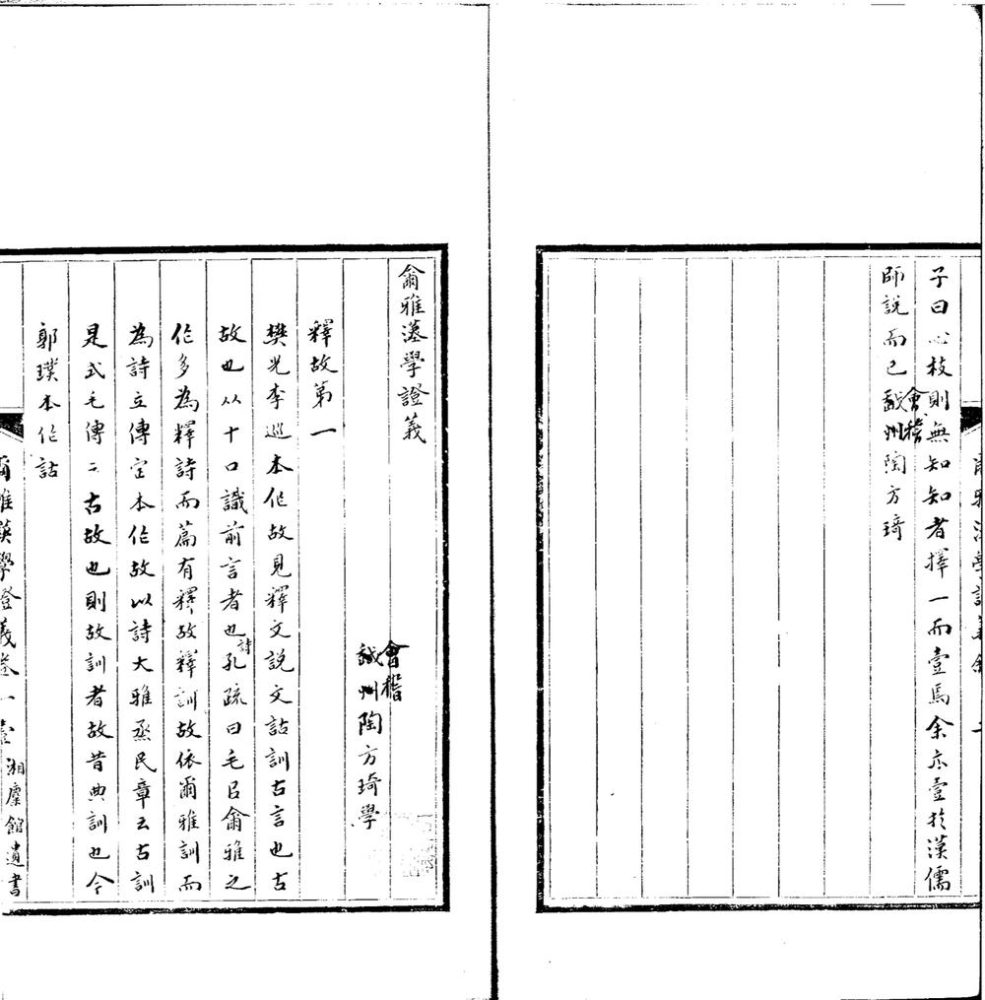 子曰心枝則無知知者擇一而壹焉余亦壹於漢儒
師說而已
會稽
陶方琦
爾雅漢學證義
會稽
陶方琦學
釋故第一
樊光李巡本作故見釋文說文詁訓古言也古
故也从十口識前言者也詩孔疏曰毛㠯爾雅之
作多為釋詩而篇有釋故釋訓故依爾雅訓而
為詩立傳定本作故以詩大雅烝民章云古訓
是式毛傳云古故也則故訓者故昔典訓也今
郭璞本作詁
爾雅漢學證義卷一
壹
湘麋館遺書